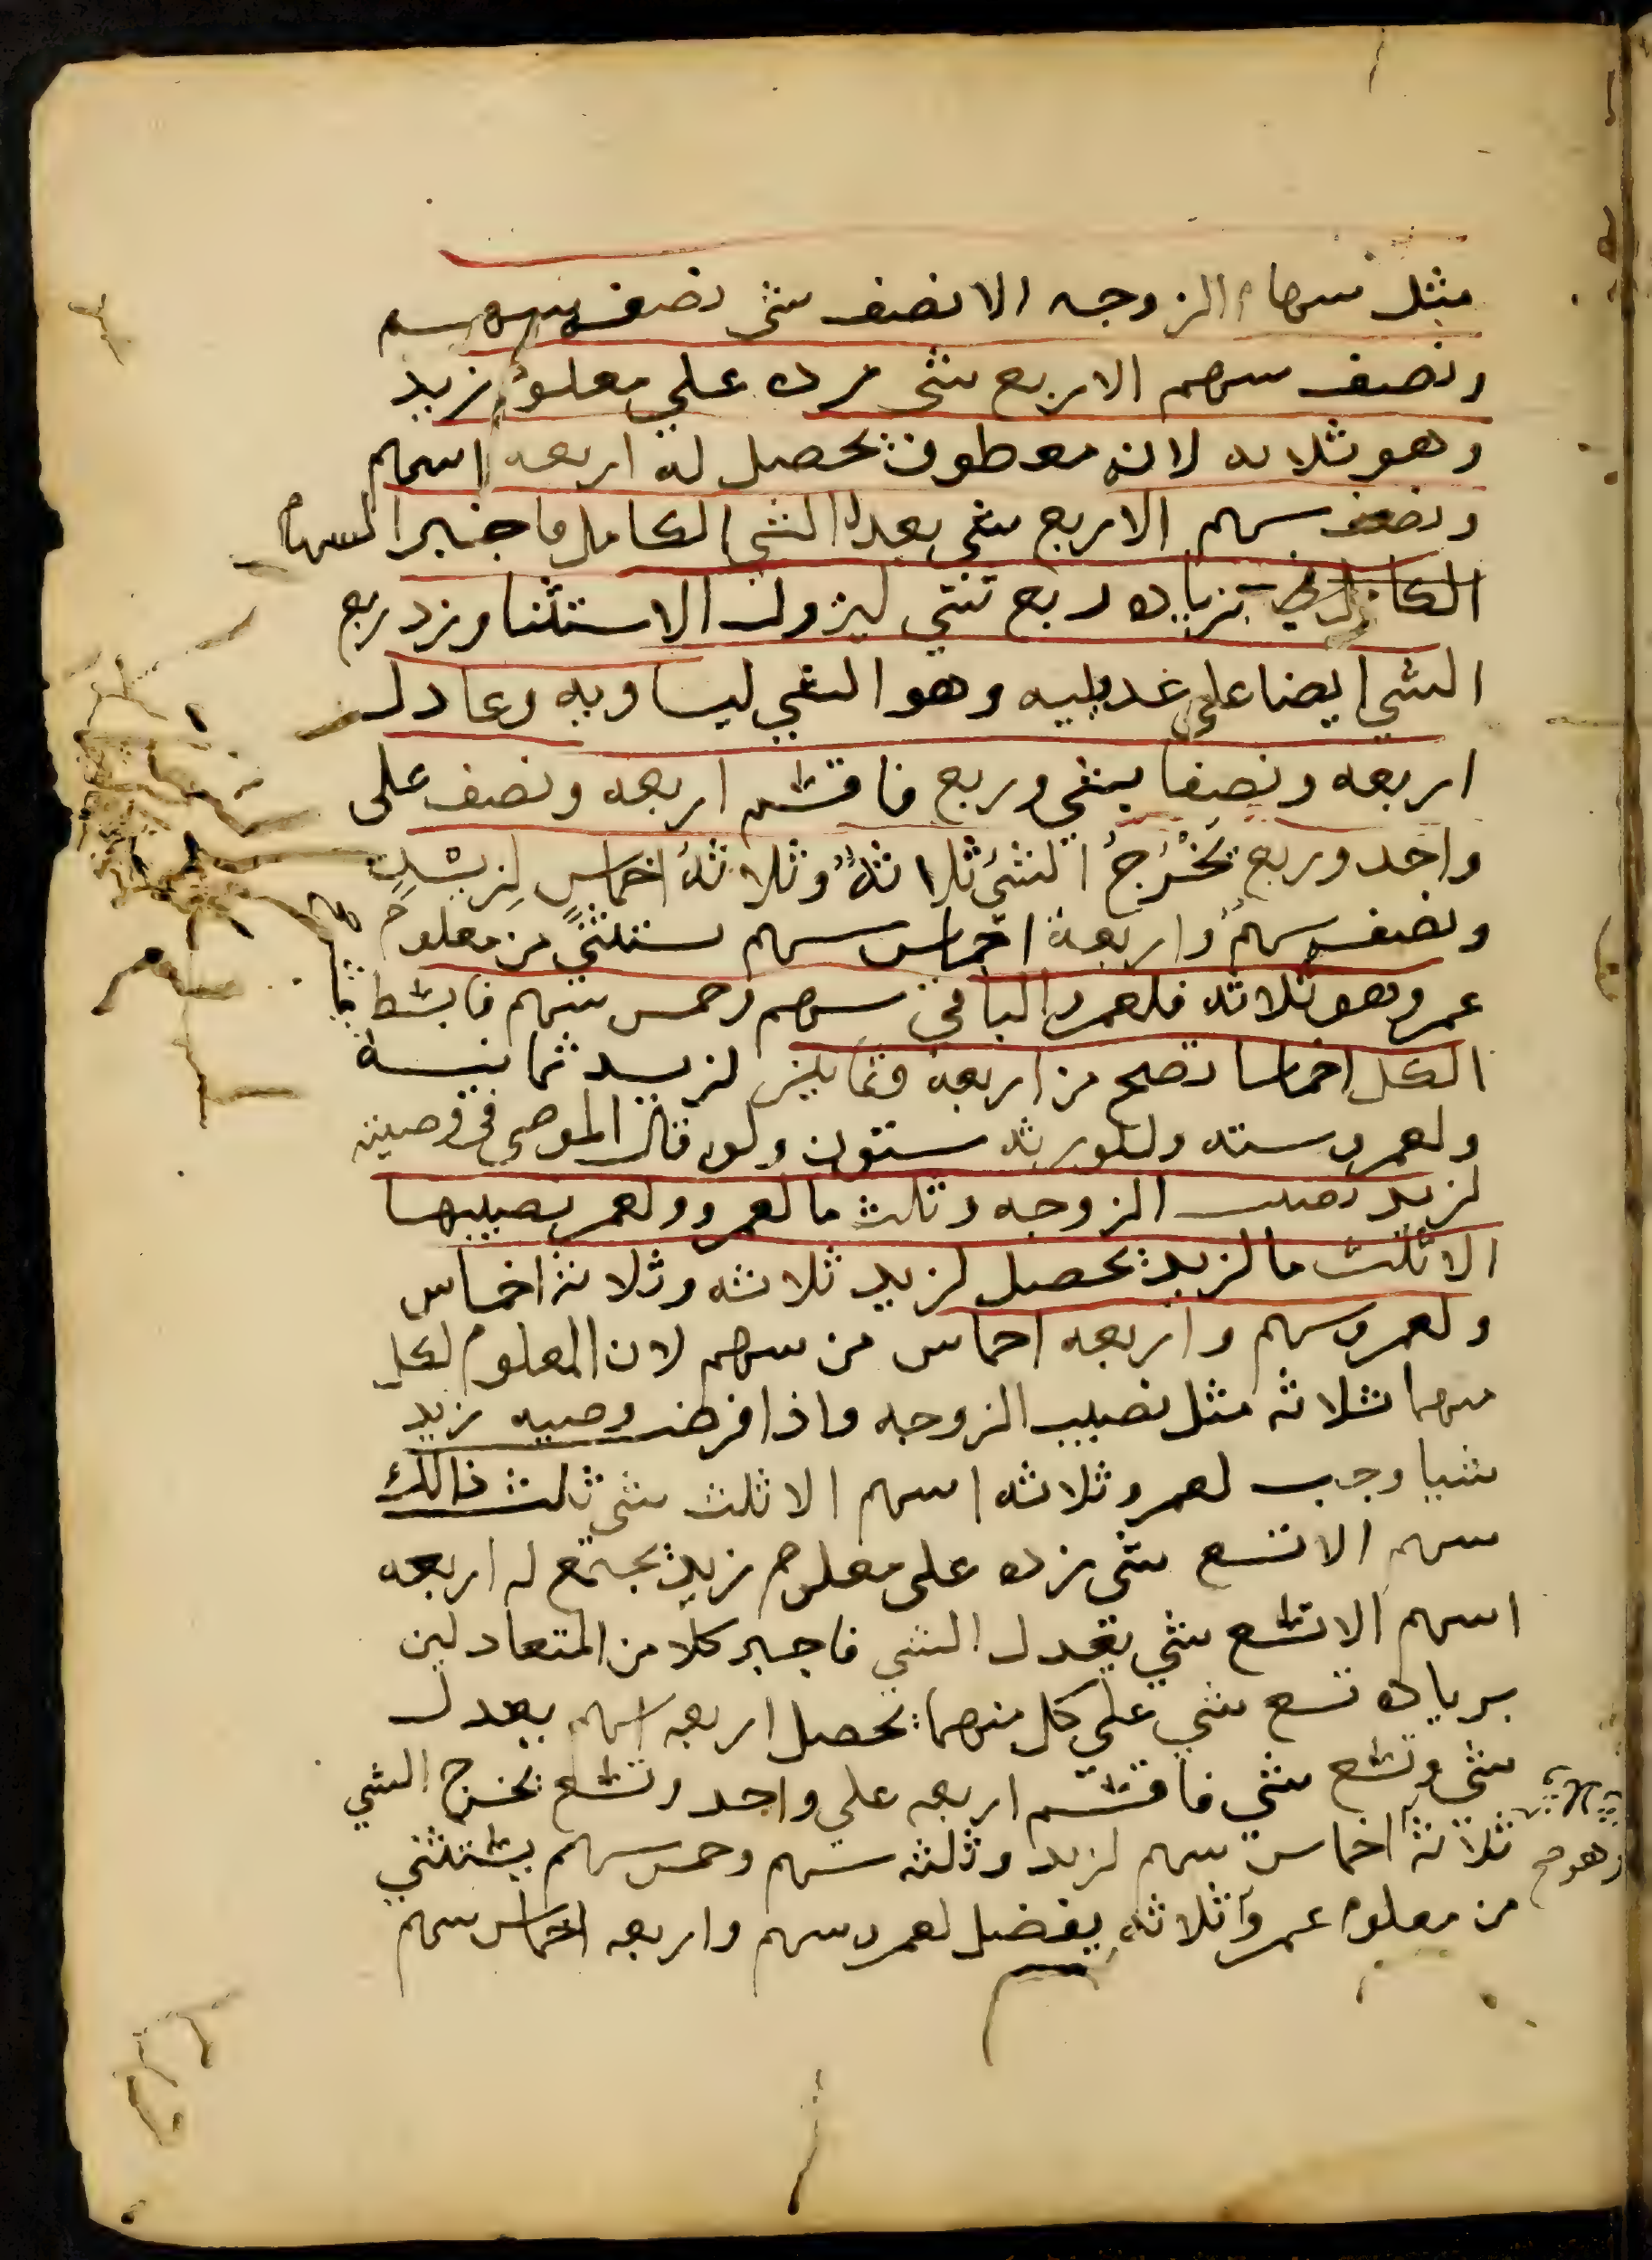 مثل سهام الزوجه الا نصف شي نصف سهم
ونصف سهم الا ربع شي زده علي معلوم زيد
وهو ثلاثه لانه معطوف يحصل له اربعه اسهم
ونصف سهم الا ربع شي يعدل الشي الكامل فاجبر السهام
بزياده ربع شي ليزول الاستثنا وزد ربع
الشي ايضا علي عديليه وهو الشي ليساويه وعادل
اربعه ونصفا بشي وربع فاقسم اربعه ونصف على
واحد وربع يَخْرُجُ الشئ ثلاثةٌ وثلاثةُ اخماسٍ لزيد
ونصف سهم واربعة اخماس سهم تستثني من معلوم
عمرو وهو ثلاثه فلعمرو الباقي سهم وخمس سهم فابسط
الكل اخماسا تصح من اربعة وثمانين لزيد ثمانية
ولعمرو سته وللورثه ستون ولو قال الموصي في وصيته
لزيد نصيب الزوجه وثلث ما لعمرو ولعمرو نصيبها
الا ثلث ما لزيد يحصل لزيد ثلاثه وثلاثة اخماس
ولعمرو سهم واربعه اخماس من سهم لان المعلوم لكل
منهما ثلاثه مثل نصيب الزوجه واذا فرضت وصيه زيد
شيا وجب لعمرو ثلاثه اسهم الا ثلث شي ثلث ذالك
سهم الا تسع شي زده على معلوم زيد يجتمع له اربعه
اسهم الا تسع شي يعدل الشي فاجبر كلا من المتعادلين
بزياده تسع شي على كل منهما يحصل اربعه اسهم يعدل
شي وتسع شي فاقسم اربعه علي واحد وتسع يخرج الشي
وهو ثلاثة اخماس سهم لزيد وثلثه سهم وخمس سهم يستثني
من معلوم عمرو ثلاثه يفضل لعمرو سهم واربعه اخماس سهم